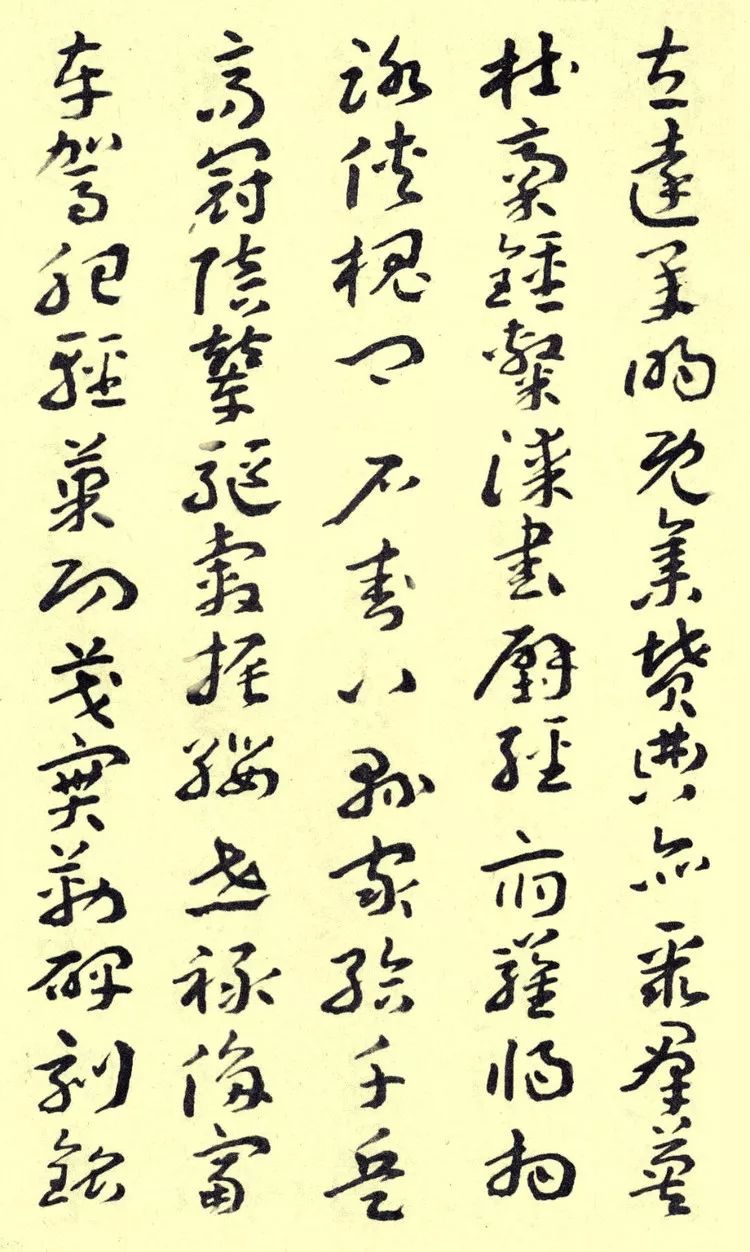 左達承明既集墳典亦聚羣英
杜稾鍾隸漆書壁經府羅將相
路俠槐卿戶封八縣家給千兵
高冠陪輦驅轂振纓世祿侈富
車駕肥輕策功茂實勒碑刻銘